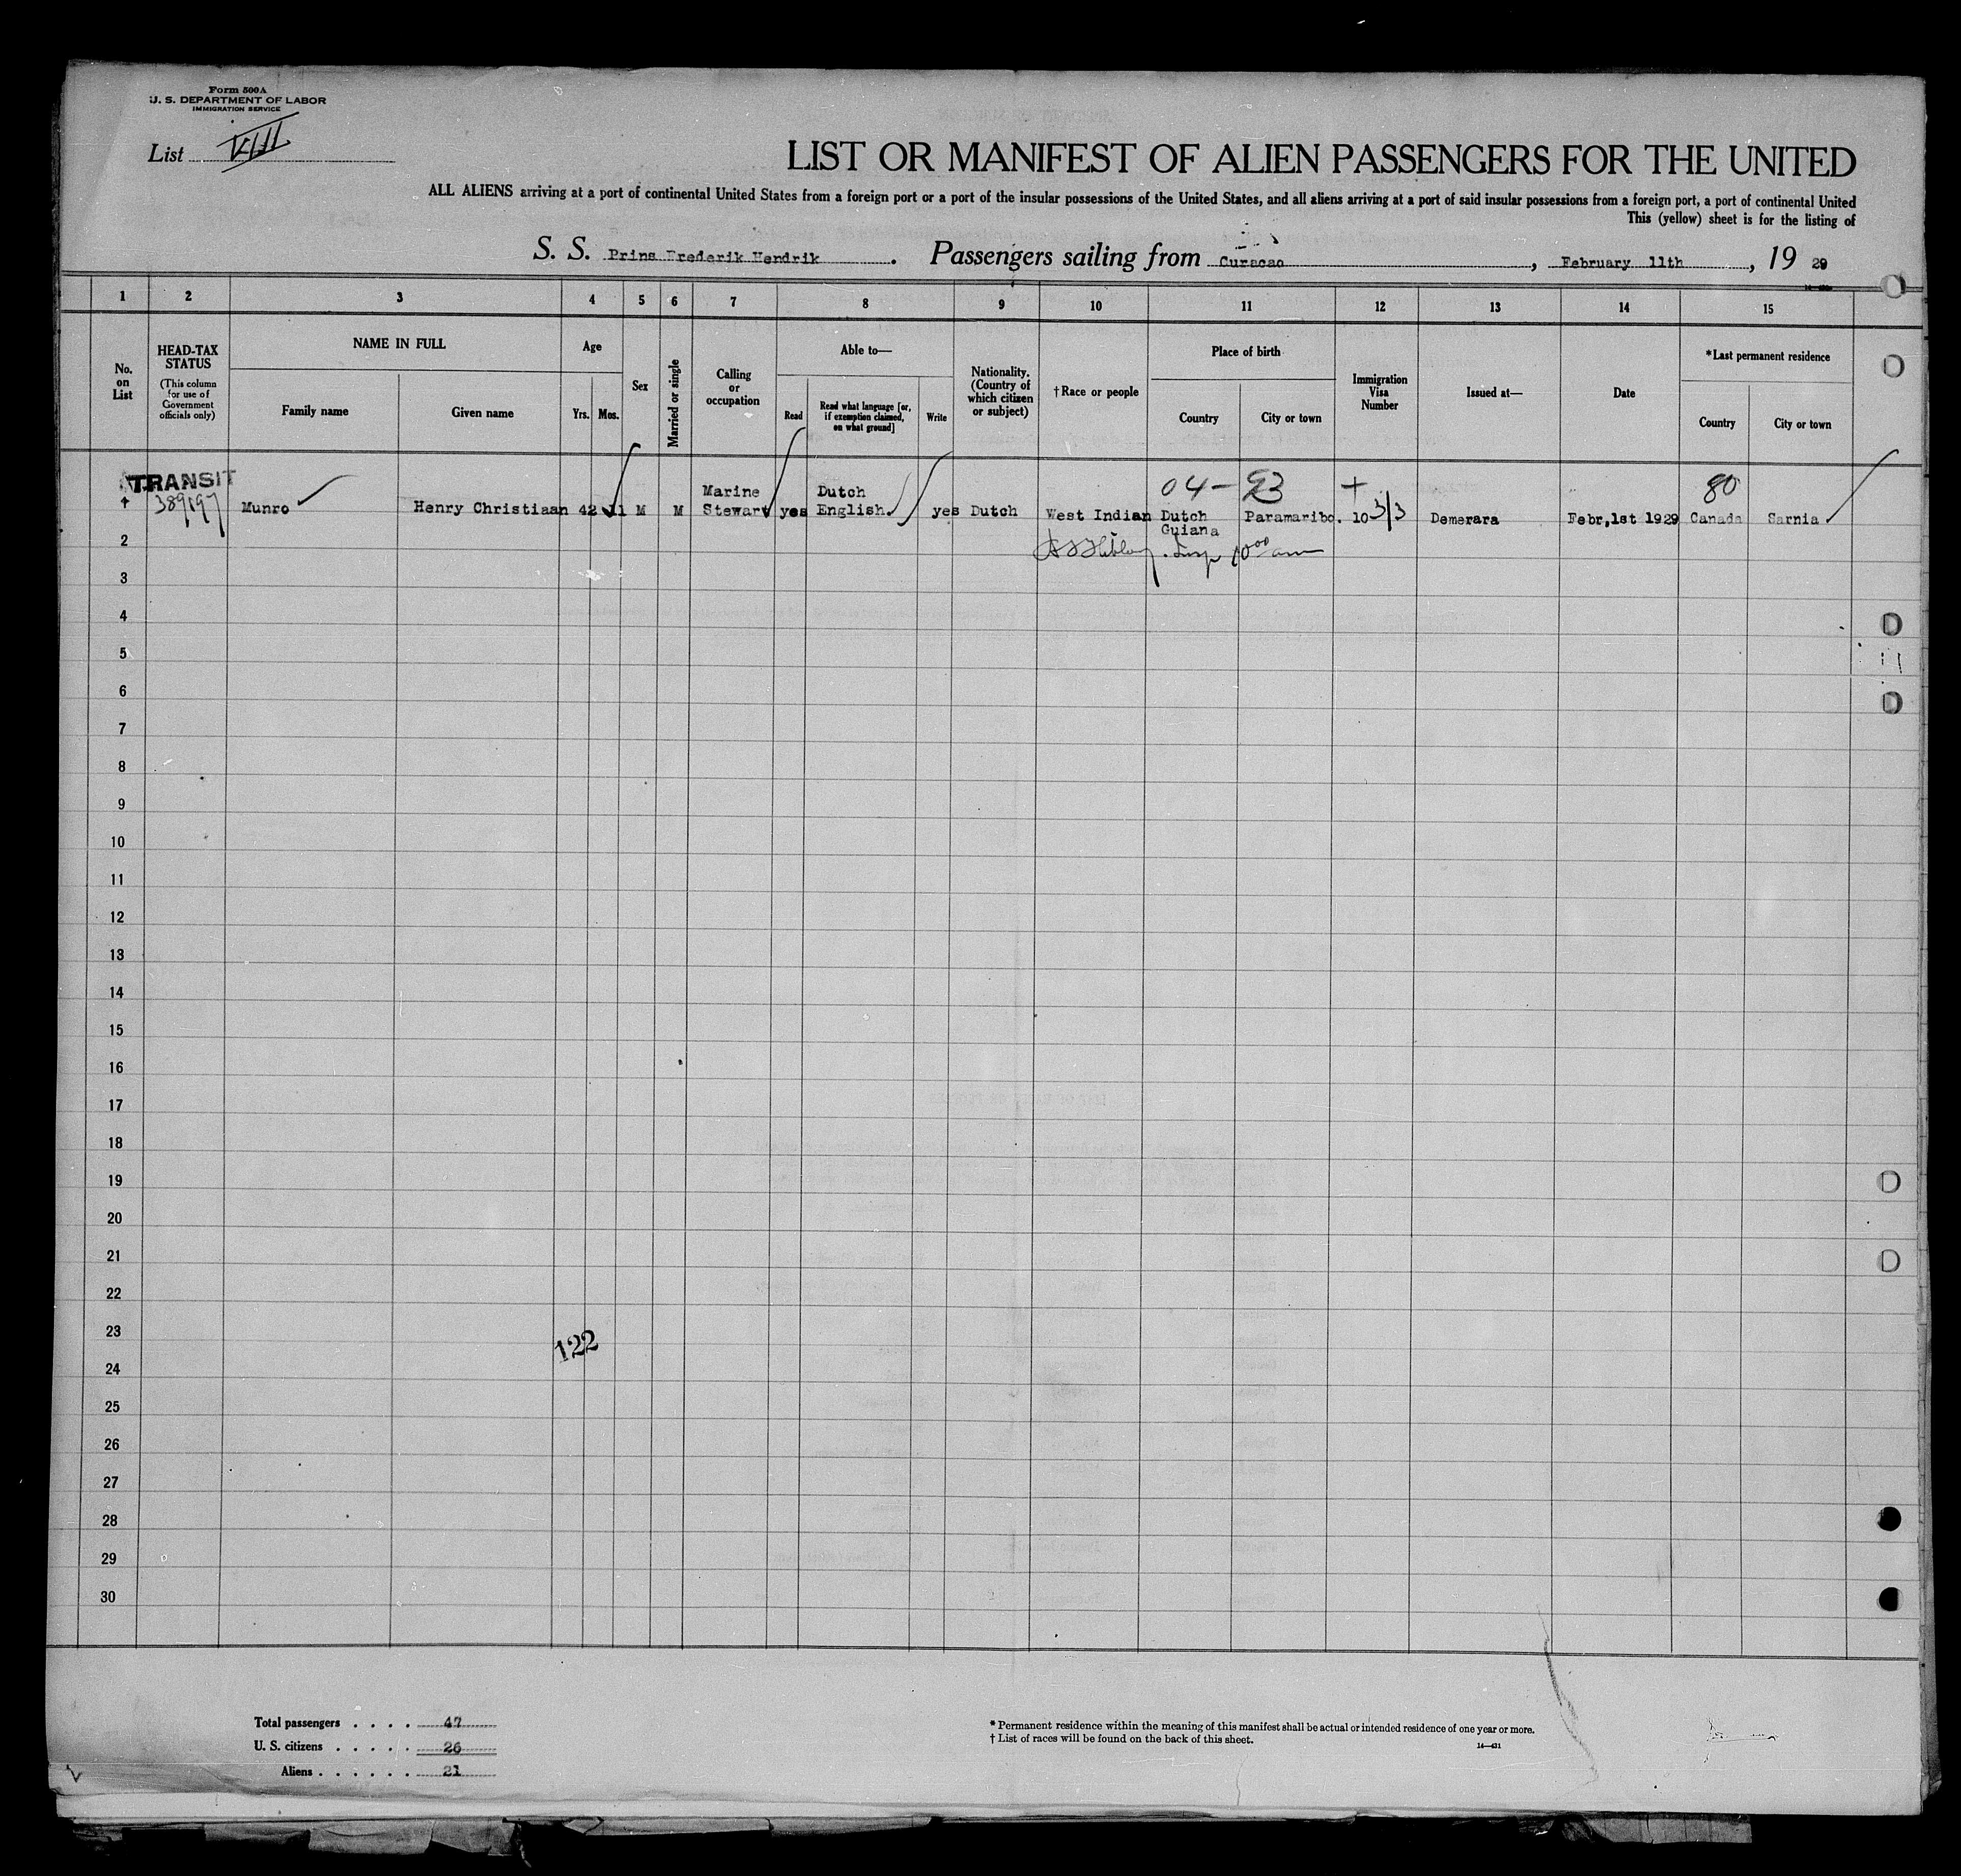 Form 500A
U. S. DEPARTMENT OF LABOR
IMMIGRATION SERVICE
List VIII
LIST OR MANIFEST OF ALIEN PASSENGERS FOR THE UNITED
ALL ALIENS arriving at a port of continental United States from a foreign port or a port of the insular possessions of the United States, and all aliens arriving at a port of said insular possessions from a foreign port, a port of continental United
This (yellow) sheet is for the listing of
S. S. Prins Frederik Hendrik. Passengers sailing from Curacao, February 11th, 19 29
1 2 3 4 5 6 7 8 9 10 11 12 13 14 15
No. on List
HEAD-TAX STATUS
(This column for use of Government officials only)
NAME IN FULL
Family name
Given name
Age
Yrs. Mos.
Sex
Married or single
Calling or occupation
Able to—
Read
Read what language [or, if exemption claimed, on what ground]
Write
Nationality. (Country of which citizen or subject)
†Race or people
Place of birth
Country
City or town
Immigration Visa Number
Issued at—
Date
*Last permanent residence
Country
City or town
TRANSIT
389197
04-93
80
Munro Henry Christiaan 42 11 M M Marine Stewart yes Dutch English. yes Dutch West Indian Dutch Guiana Paramaribo. 10 3/3 Demerara Febr,1st 1929 Canada Sarnia
10 00 am
2
3
4
5
6
7
8
9
10
11
12
13
14
15
16
17
18
19
20
21
22
23
122
24
25
26
27
28
29
30
Total passengers . . . . 47
U. S. citizens . . . . . 26
Aliens . . . . . . 21
* Permanent residence within the meaning of this manifest shall be actual or intended residence of one year or more.
† List of races will be found on the back of this sheet.
14—431